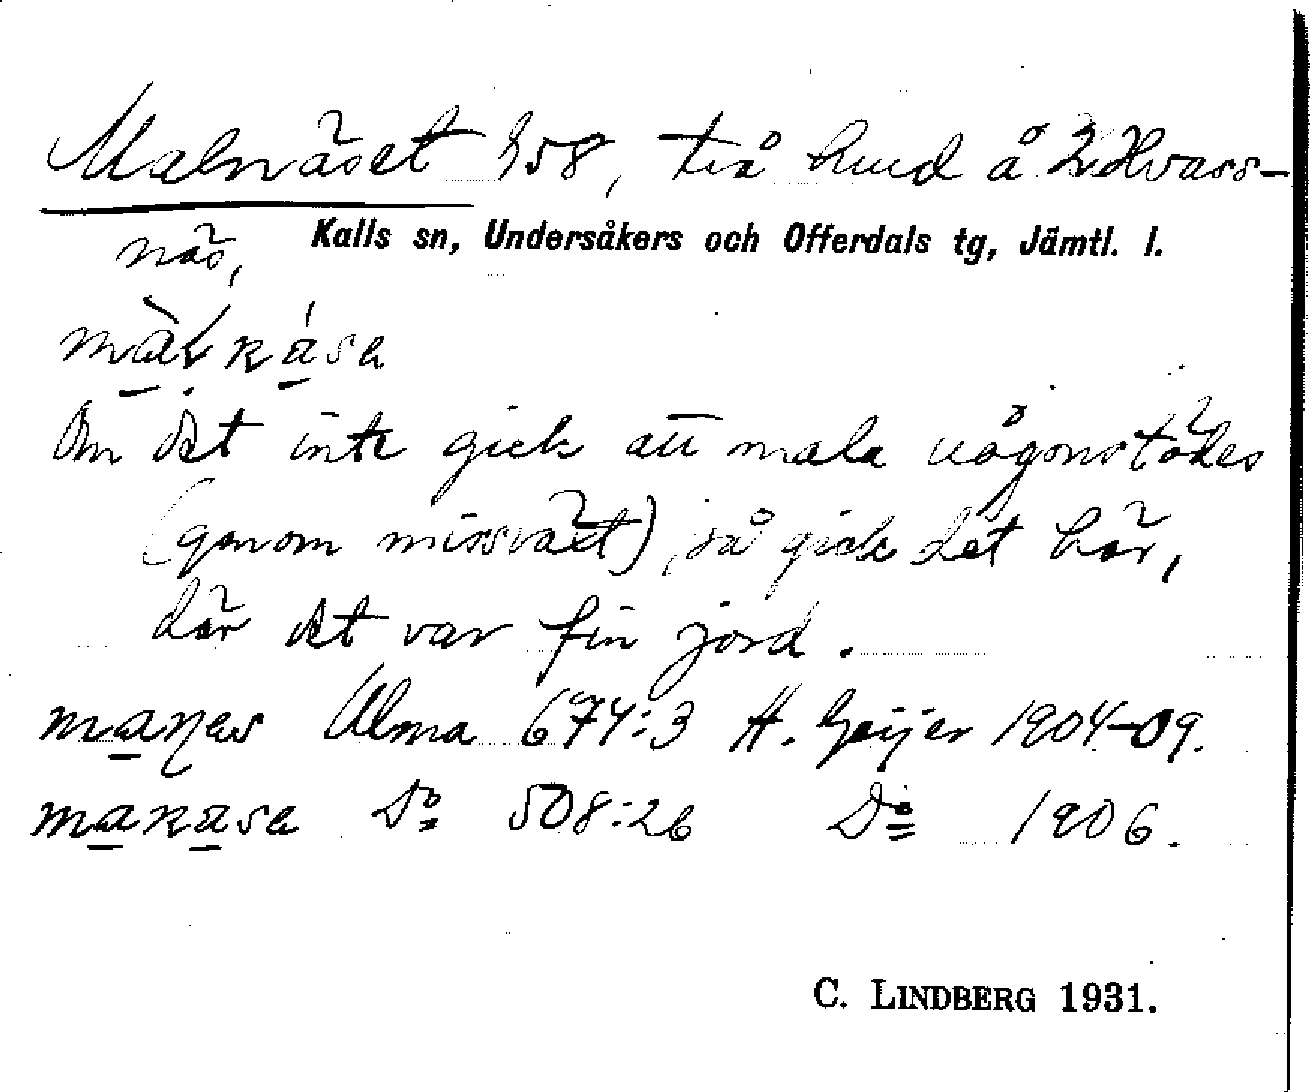 Malnäset 958, två hmd å 2 Hvass-
näs,
Kalls sn, Undersåkers och Offerdals tg, Jämtl. l.
màlnása
Om det inte gick att mala någonstädes
(genom missväxt), så gick det här,
där det var fin jord.
manes Ulma 674:3 H. Geijer 1904-09.
manasa Do 508:26 Do 1906.
C. LINDBERG 1931.